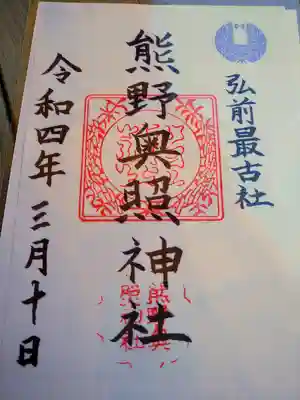 弘前最古社
熊野奥照神社
令和四年三月十日